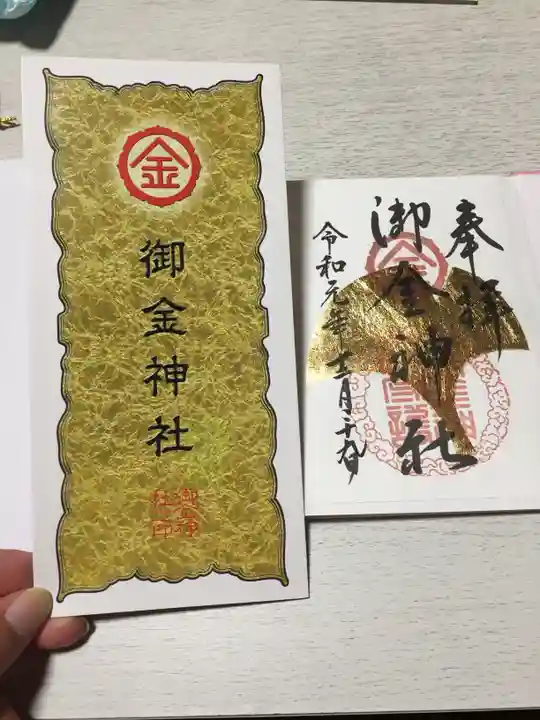 金
御金神社
御金神
社之印
奉拝
金
御金神社
令和元年十二月二十九日